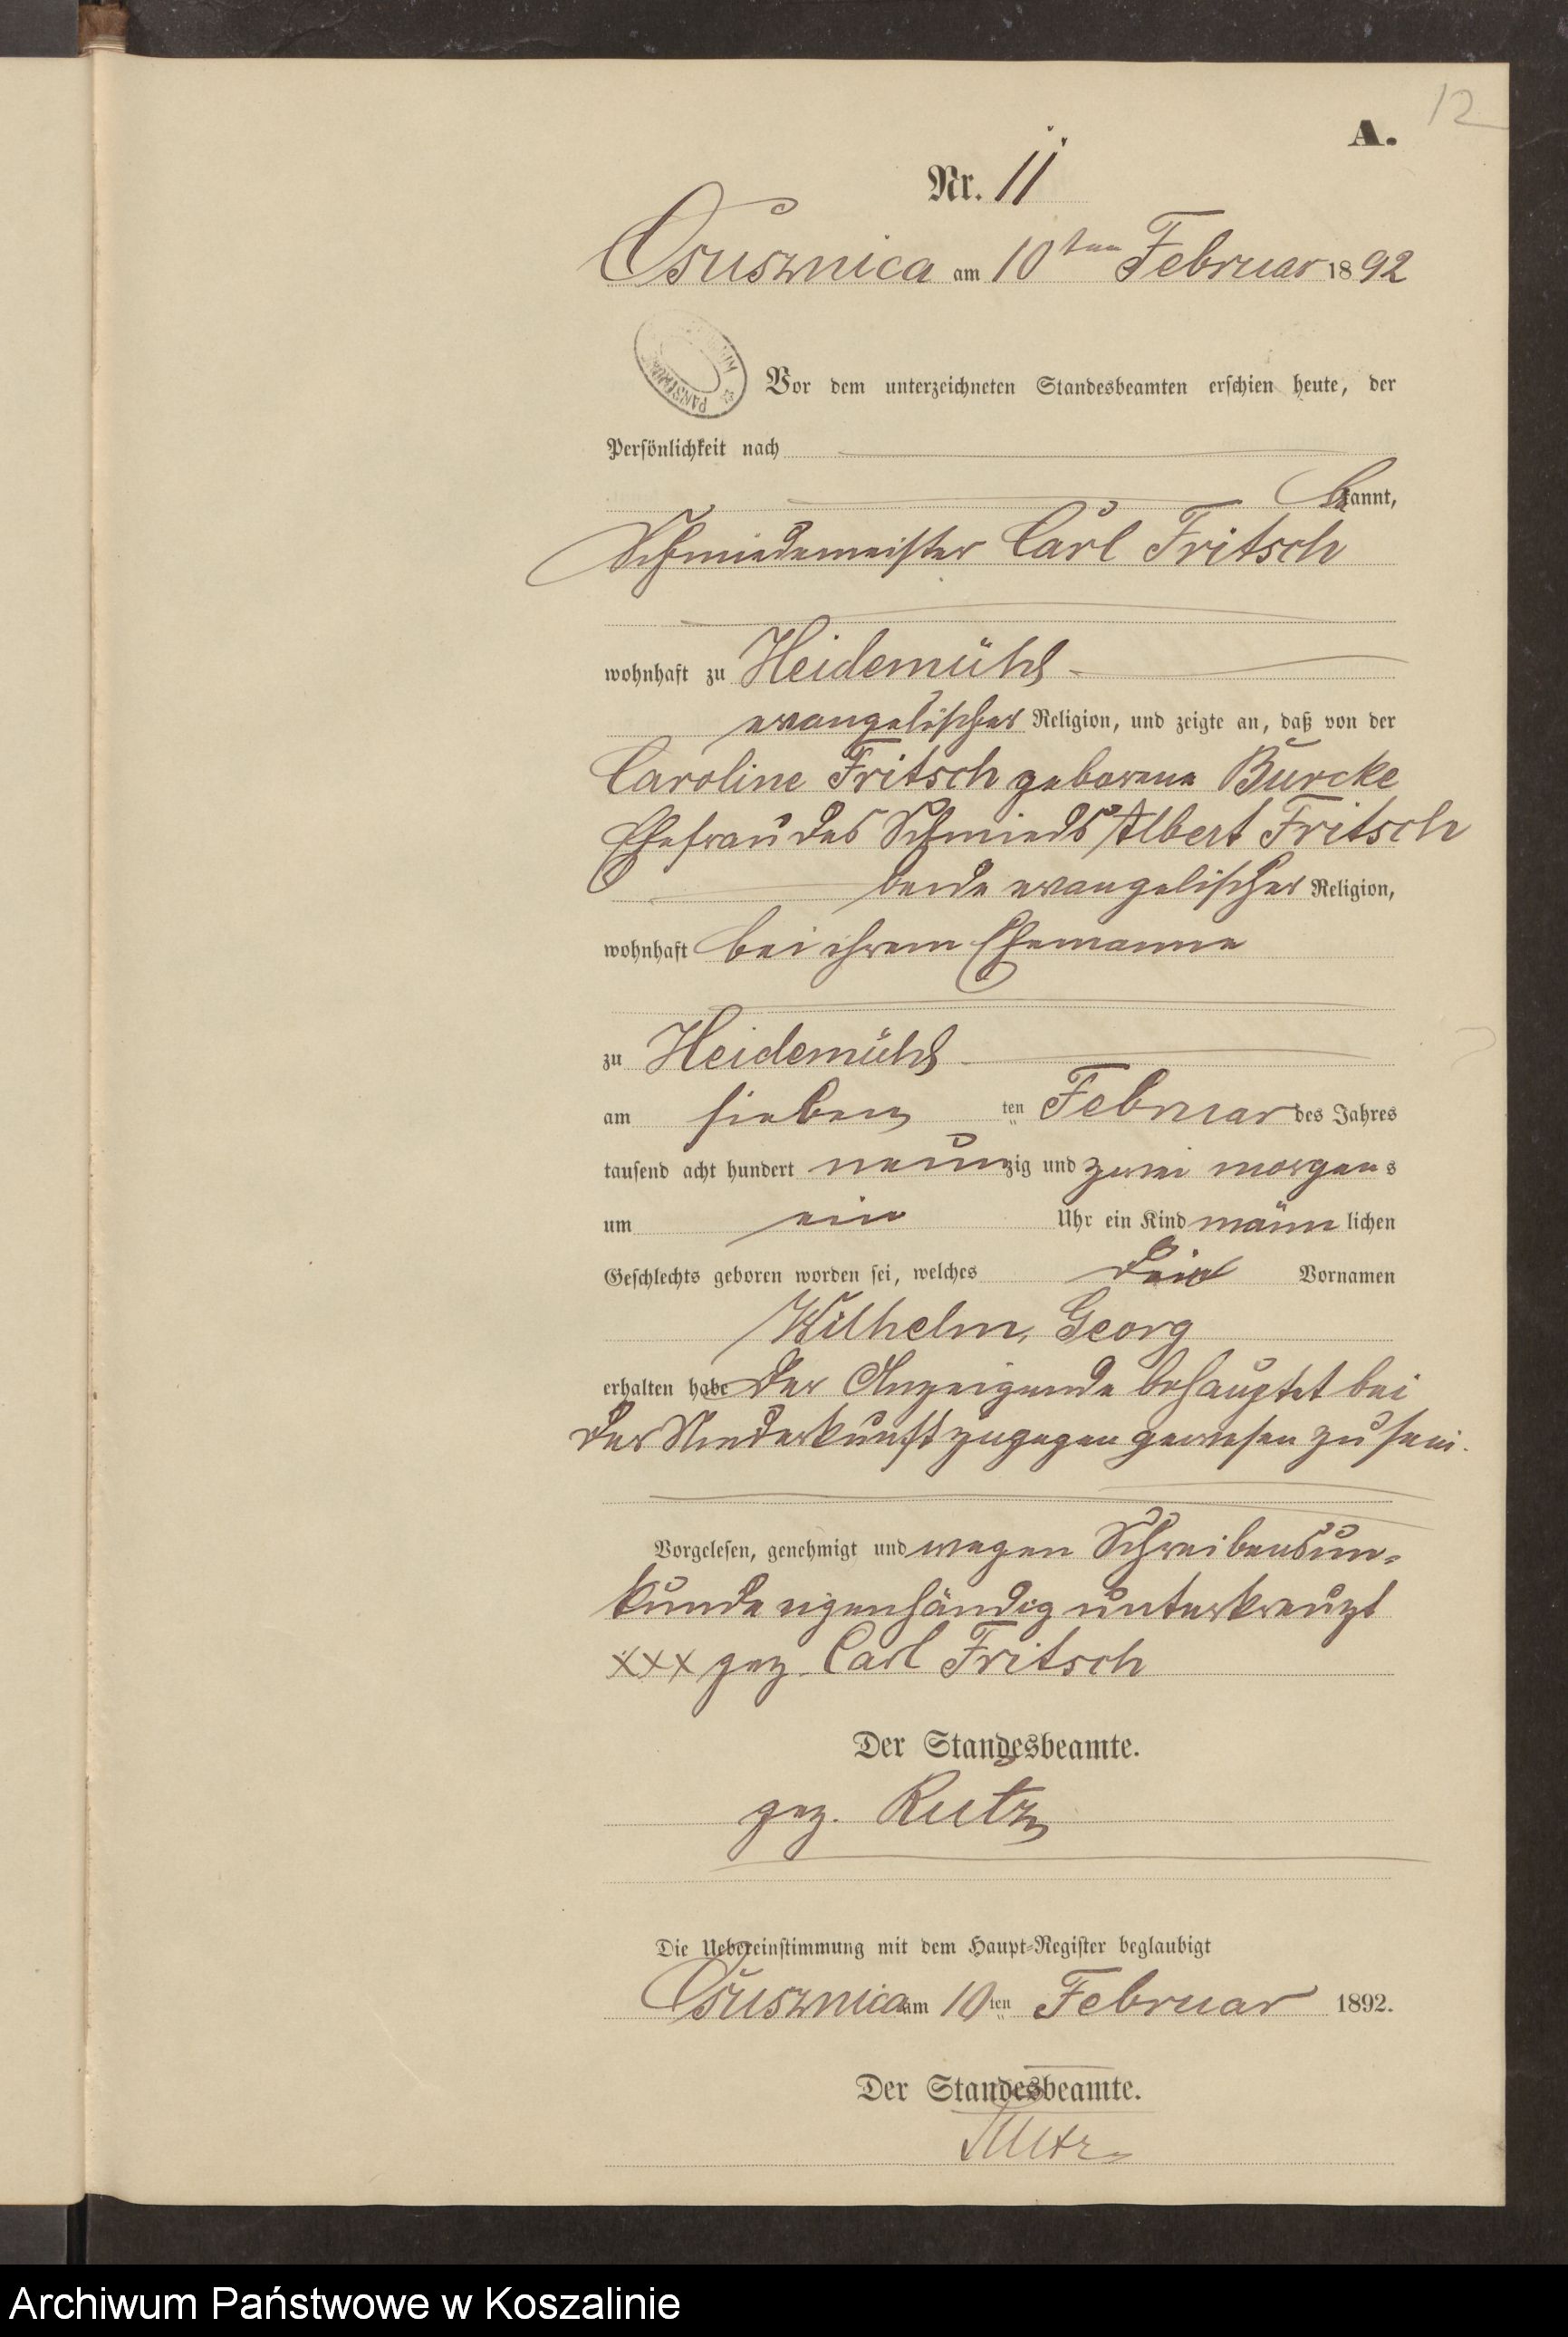 12
A.
Nr. 11
Osusznica am 10ten Februar 1892
Vor dem unterzeichneten Standesbeamten erschien heute, der
Persönlichkeit nach
bekannt,
Schmiedemeister Carl Fritsch
wohnhaft zu Heidemühl
evangelischer Religion, und zeigte an, daß von der
Caroline Fritsch geborene Burcke
Ehefrau des Schmieds Albert Fritsch
beide evangelischer Religion,
wohnhaft bei ihrem Ehemanne
zu Heidemühl
am sieben ten Februar des Jahres
tausend acht hundert neunzig und zwei morgens
um ein Uhr ein Kind männlichen
Geschlechts geboren worden sei, welches die Vornamen
Wilhelm, Georg
erhalten habe Der Anzeigende behauptet bei
der Niederkunft zugegen gewesen zu sein.
Vorgelesen, genehmigt und wegen Schreibensun-
kunde eigenhändig unterkreuzt
XXX gez. Carl Fritsch
Der Standesbeamte.
gez. Rutz
Die Uebereinstimmung mit dem Haupt-Register beglaubigt
Osusznica am 10ten Februar 1892.
Der Standesbeamte.
Rutz
Archiwum Państwowe w Koszalinie